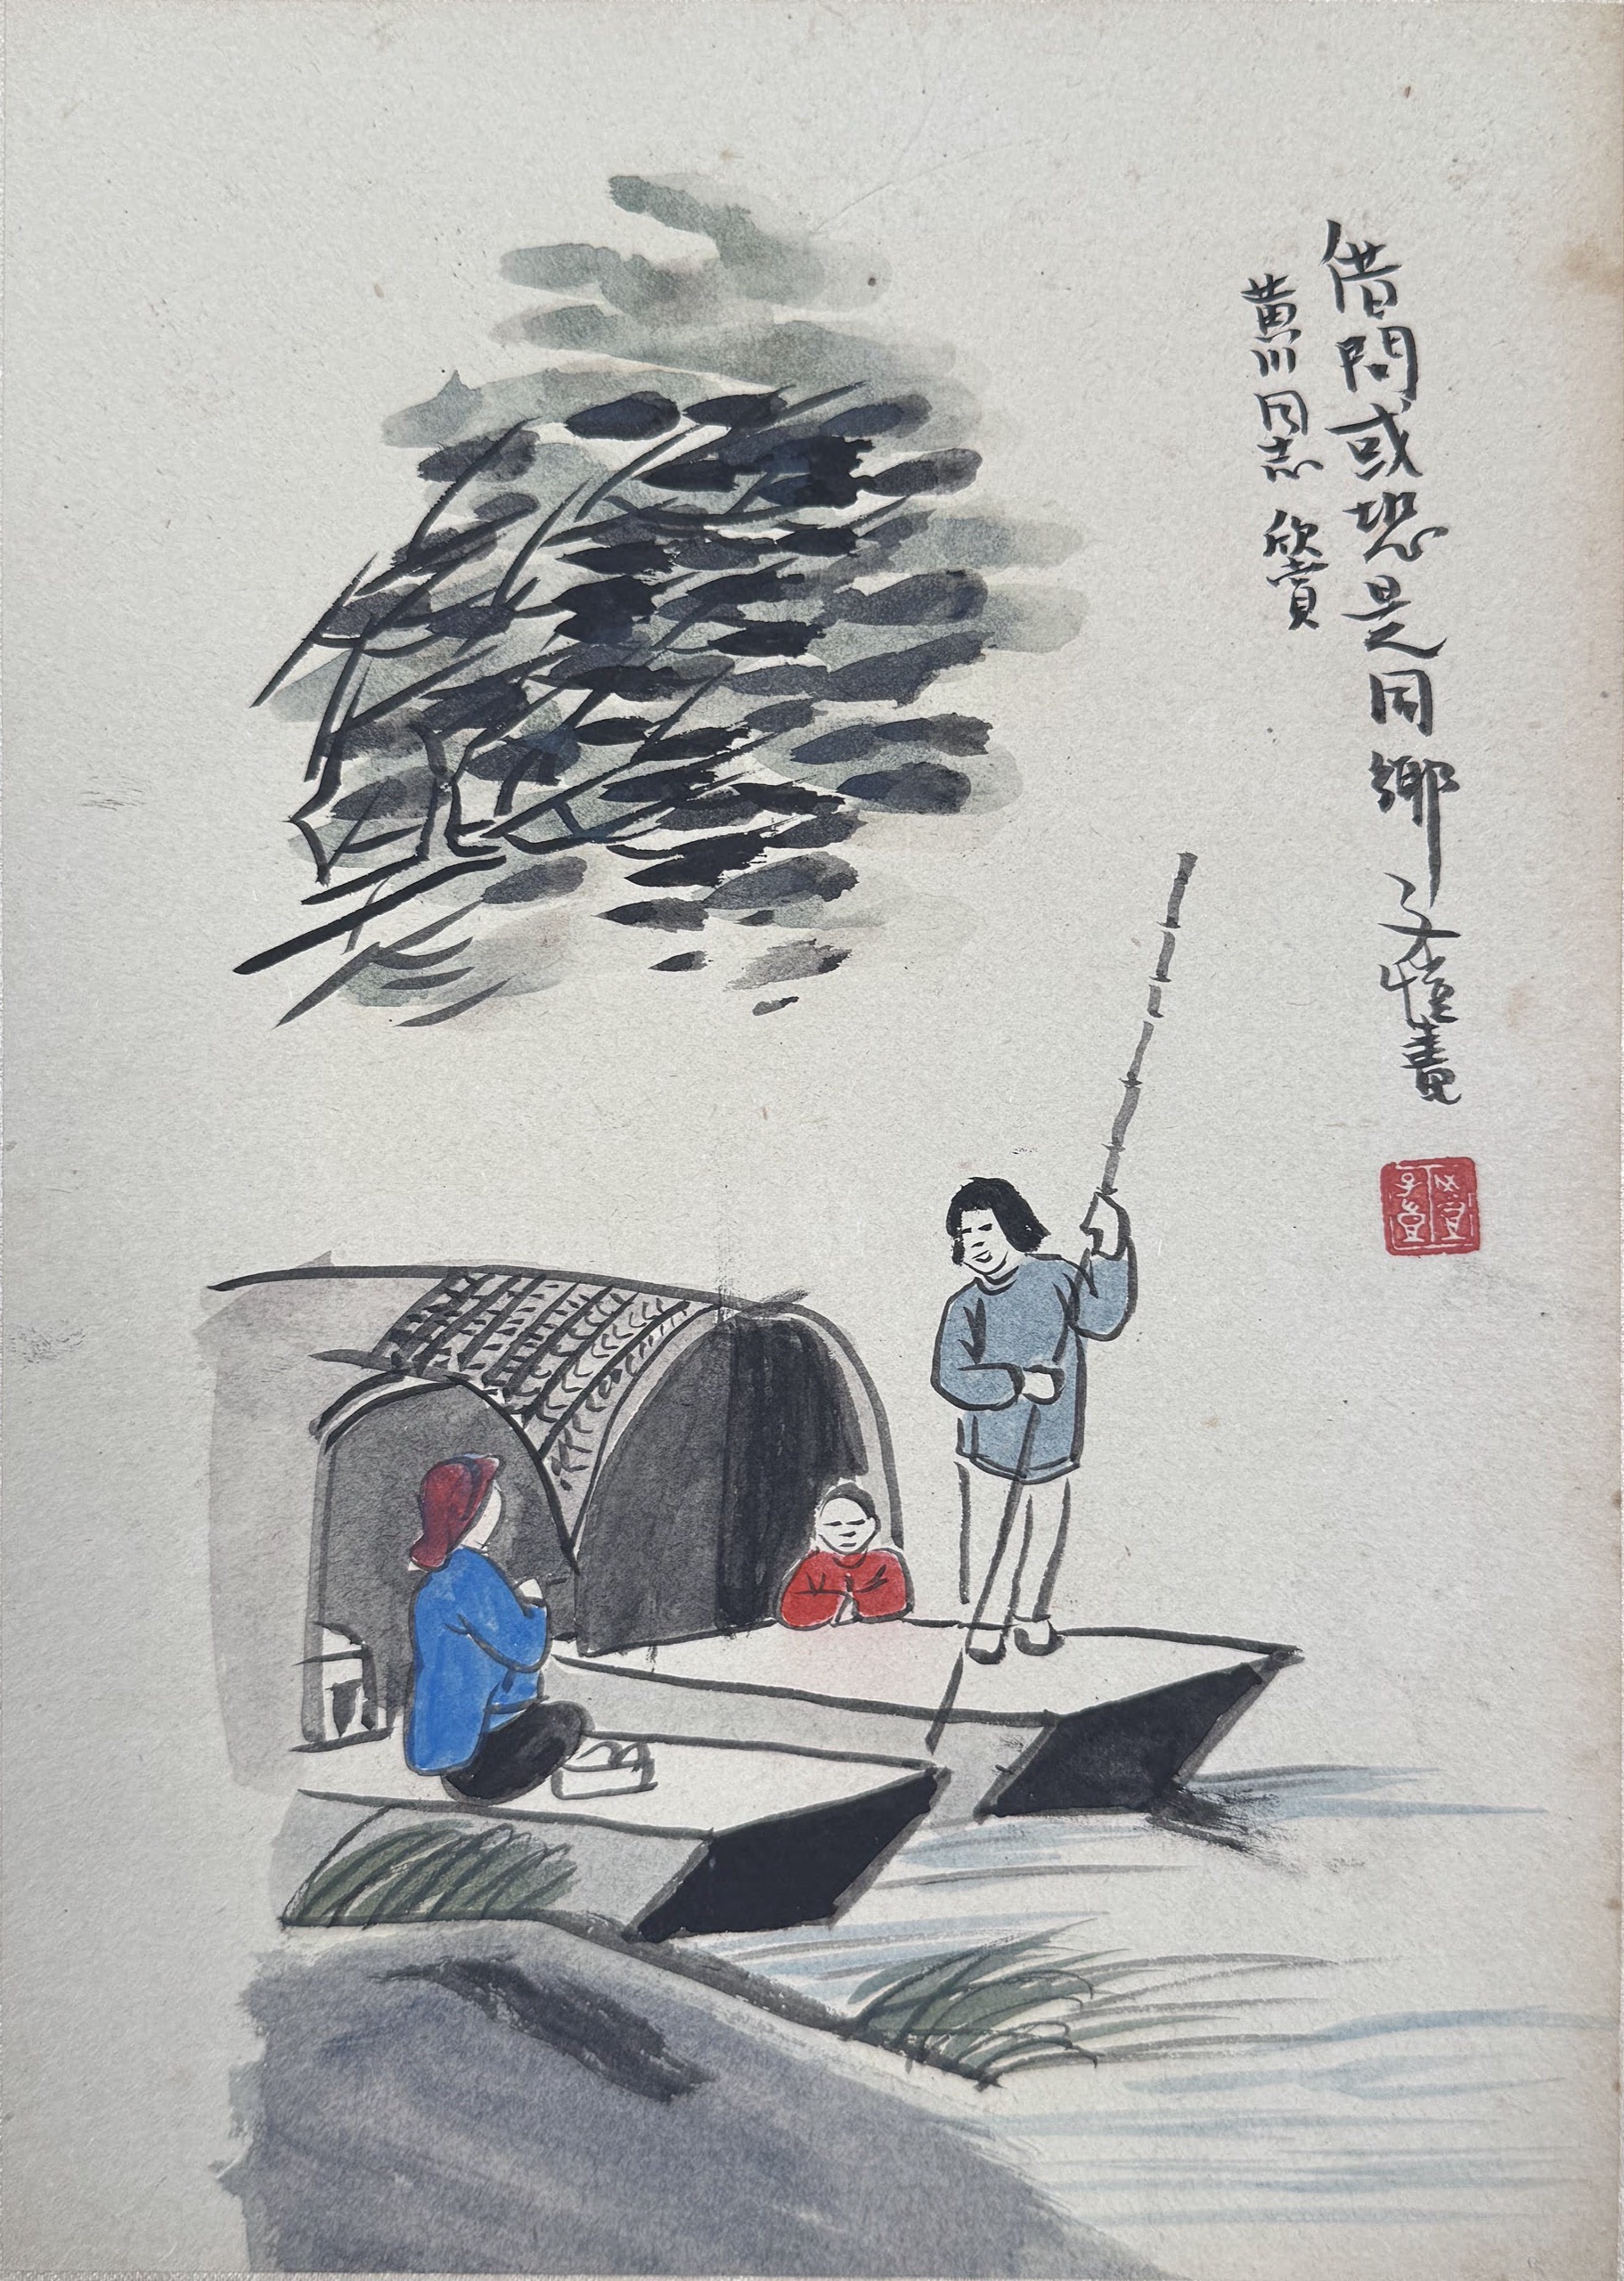 借問或恐是同鄉 子愷畫
黄川同志 欣賞